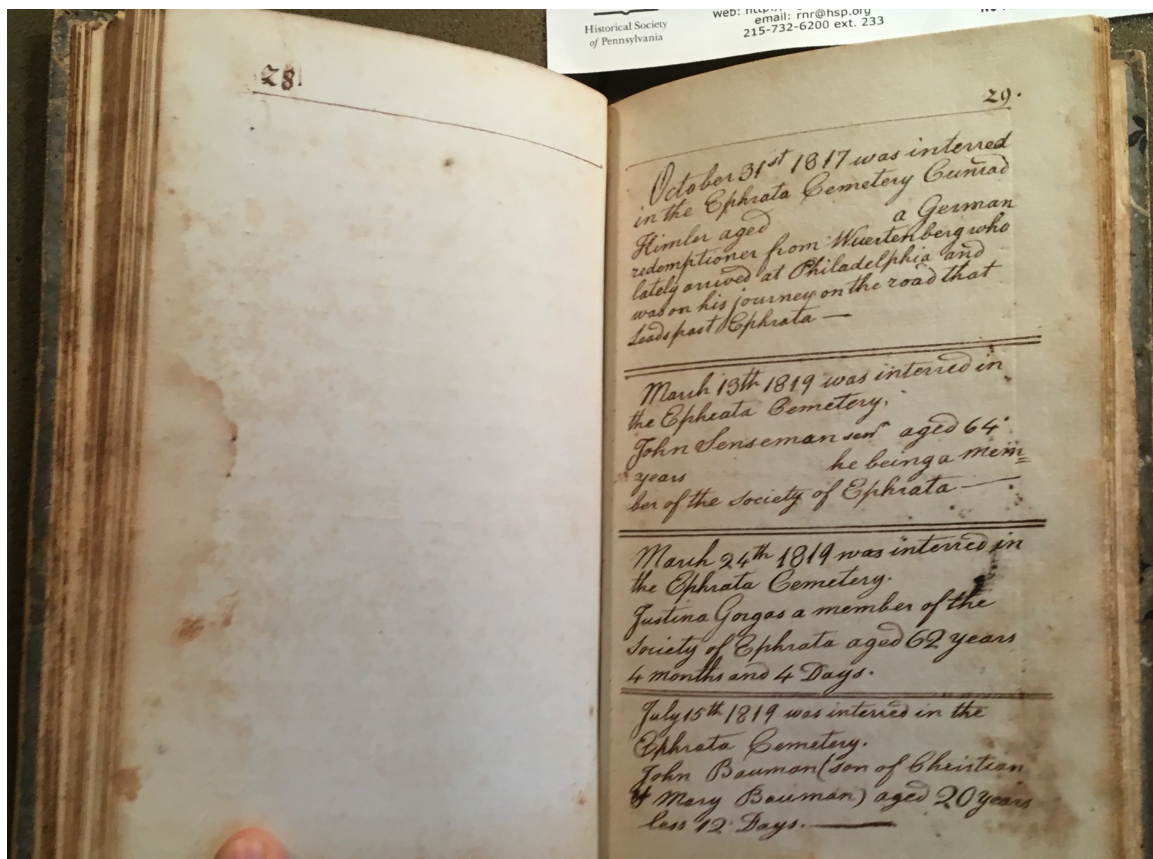 Historical Society
of Pennsylvania
web:
email: rnr@hsp.org
215-732-6200 ext. 233
28
29.
October 31st 1817 was interred
in the Ephrata Cemetery Cunrad
Himler aged a German
redemptioner from Wuertenberg who
lately arrived at Philadelphia and
was on his journey on the road that
leads past Ephrata —
March 13th 1819 was interred in
the Ephrata Cemetery.
John Senseman senr aged 64
years he being a mem=
ber of the society of Ephrata —
March 24th 1819 was interred in
the Ephrata Cemetery.
Justina Gorgas a member of the
society of Ephrata aged 62 years
4 months and 4 Days.
July 15th 1819 was interred in the
Ephrata Cemetery.
John Bauman (son of Christian
& Mary Bauman) aged 20 years
less 12 Days. —